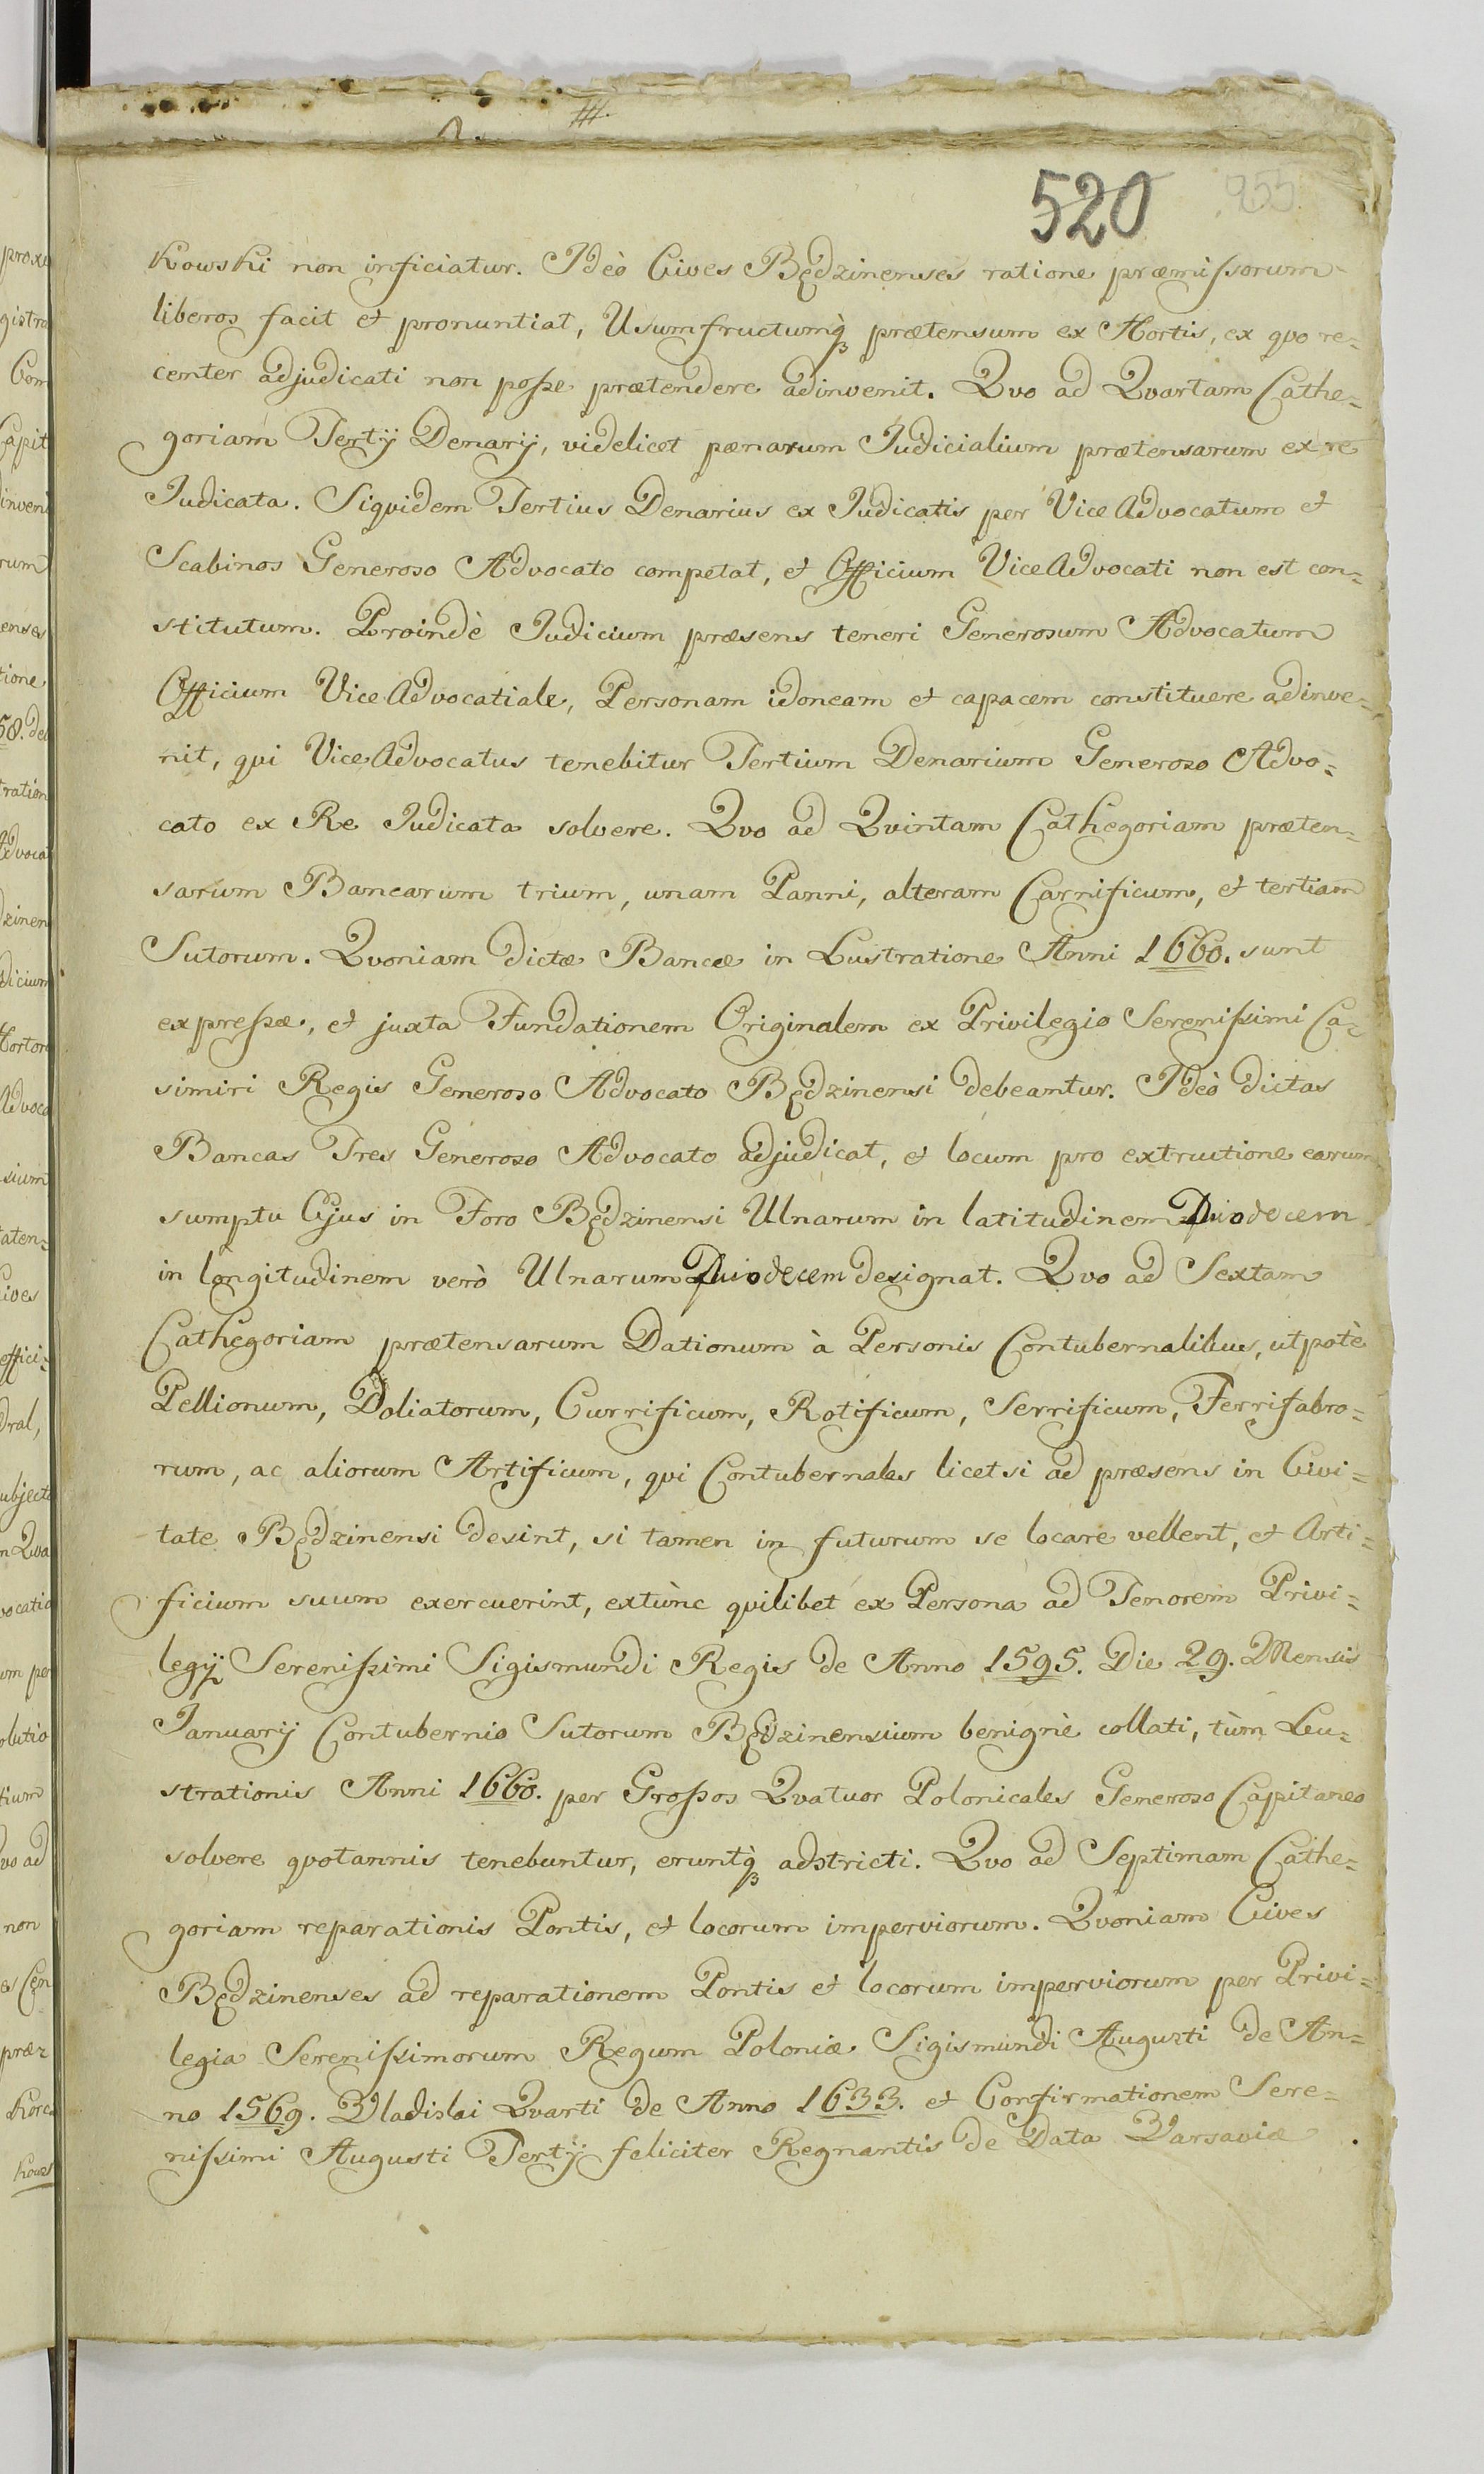 520
kowski non inficiatur. Ideò Cives Będzinenses ratione præmissorum
liberos facit et pronuntiat, Usumfructumq́ꝫ prætensum ex Hortis, ex qvo re=
center adjudicati non posse prætendere adinvenit. Qvo ad Qvartam Cathe=
goriam Tertij Denarij, videlicet pœnarum Judicialium prætensarum ex re
Judicata. Siqvidem Tertius Denarius ex Judicatis per ViceAdvocatum et
Scabinos Generoso Advocato competat, et Officium ViceAdvocati non est con=
stitutum. Proindè Judicium præsens teneri Generosum Advocatum
Officium ViceAdvocatiale, Personam idoneam et capacem constituere adinve=
nit, qvi ViceAdvocatus tenebitur Tertium Denarium Generoso Advo=
cato ex Re Judicata solvere. Qvo ad Qvintam Cathegoriam præten=
sarum Bancarum trium, unam Panni, alteram Carnificum, et tertiam
Sutorum. Qvoniam dictæ Bancæ in Lustratione Anni 1660. sunt
expressæ, et juxta Fundationem Originalem ex Privilegio Serenissimi Ca=
simiri Regis Generoso Advocato Będzinensi debeantur. Ideò dictas
Bancas Tres Generoso Advocato adjudicat, et locum pro extructione earum
sumptu Ejus in Foro Będzinensi Ulnarum in latitudinem Duodecem
in longitudinem verò Ulnarum Duodecem designat. Qvo ad Sextam
Cathegoriam prætensarum Dationum à Personis Contubernalibus, utpotè
Pellionum, Doliatorum, Currificum, Rotificum, Serrificum, Ferrifabro=
rum, ac aliorum Artificum, qvi Contubernales licet si ad præsens in Civi=
tate Będzinensi desint, si tamen in futurum se locare vellent, et Arti=
ficium suum exercuerint, extùnc qvilibet ex Persona ad Tenorem Privi=
legij Serenissimi Sigismundi Regis de Anno 1595. Die 29. Mensis
Januarij Contubernio Sutorum Będzinensium benignè collati, tùm Lu=
strationis Anni 1660. per Grossos Qvatuor Polonicales Generoso Capitaneo
solvere qvotannis tenebuntur, eruntq́ꝫ adstricti. Qvo ad Septimam Cathe=
goriam reparationis Pontis, et locorum imperviorum. Qvoniam Cives
Będzinenses ad reparationem Pontis et locorum imperviorum per Privi=
legia Serenissimorum Regum Poloniæ Sigismundi Augusti de An=
no 1569. Vladislai Qvarti de Anno 1633. et Confirmationem Sere=
nissimi Augusti Tertij feliciter Regnantis de Data Varsaviæ